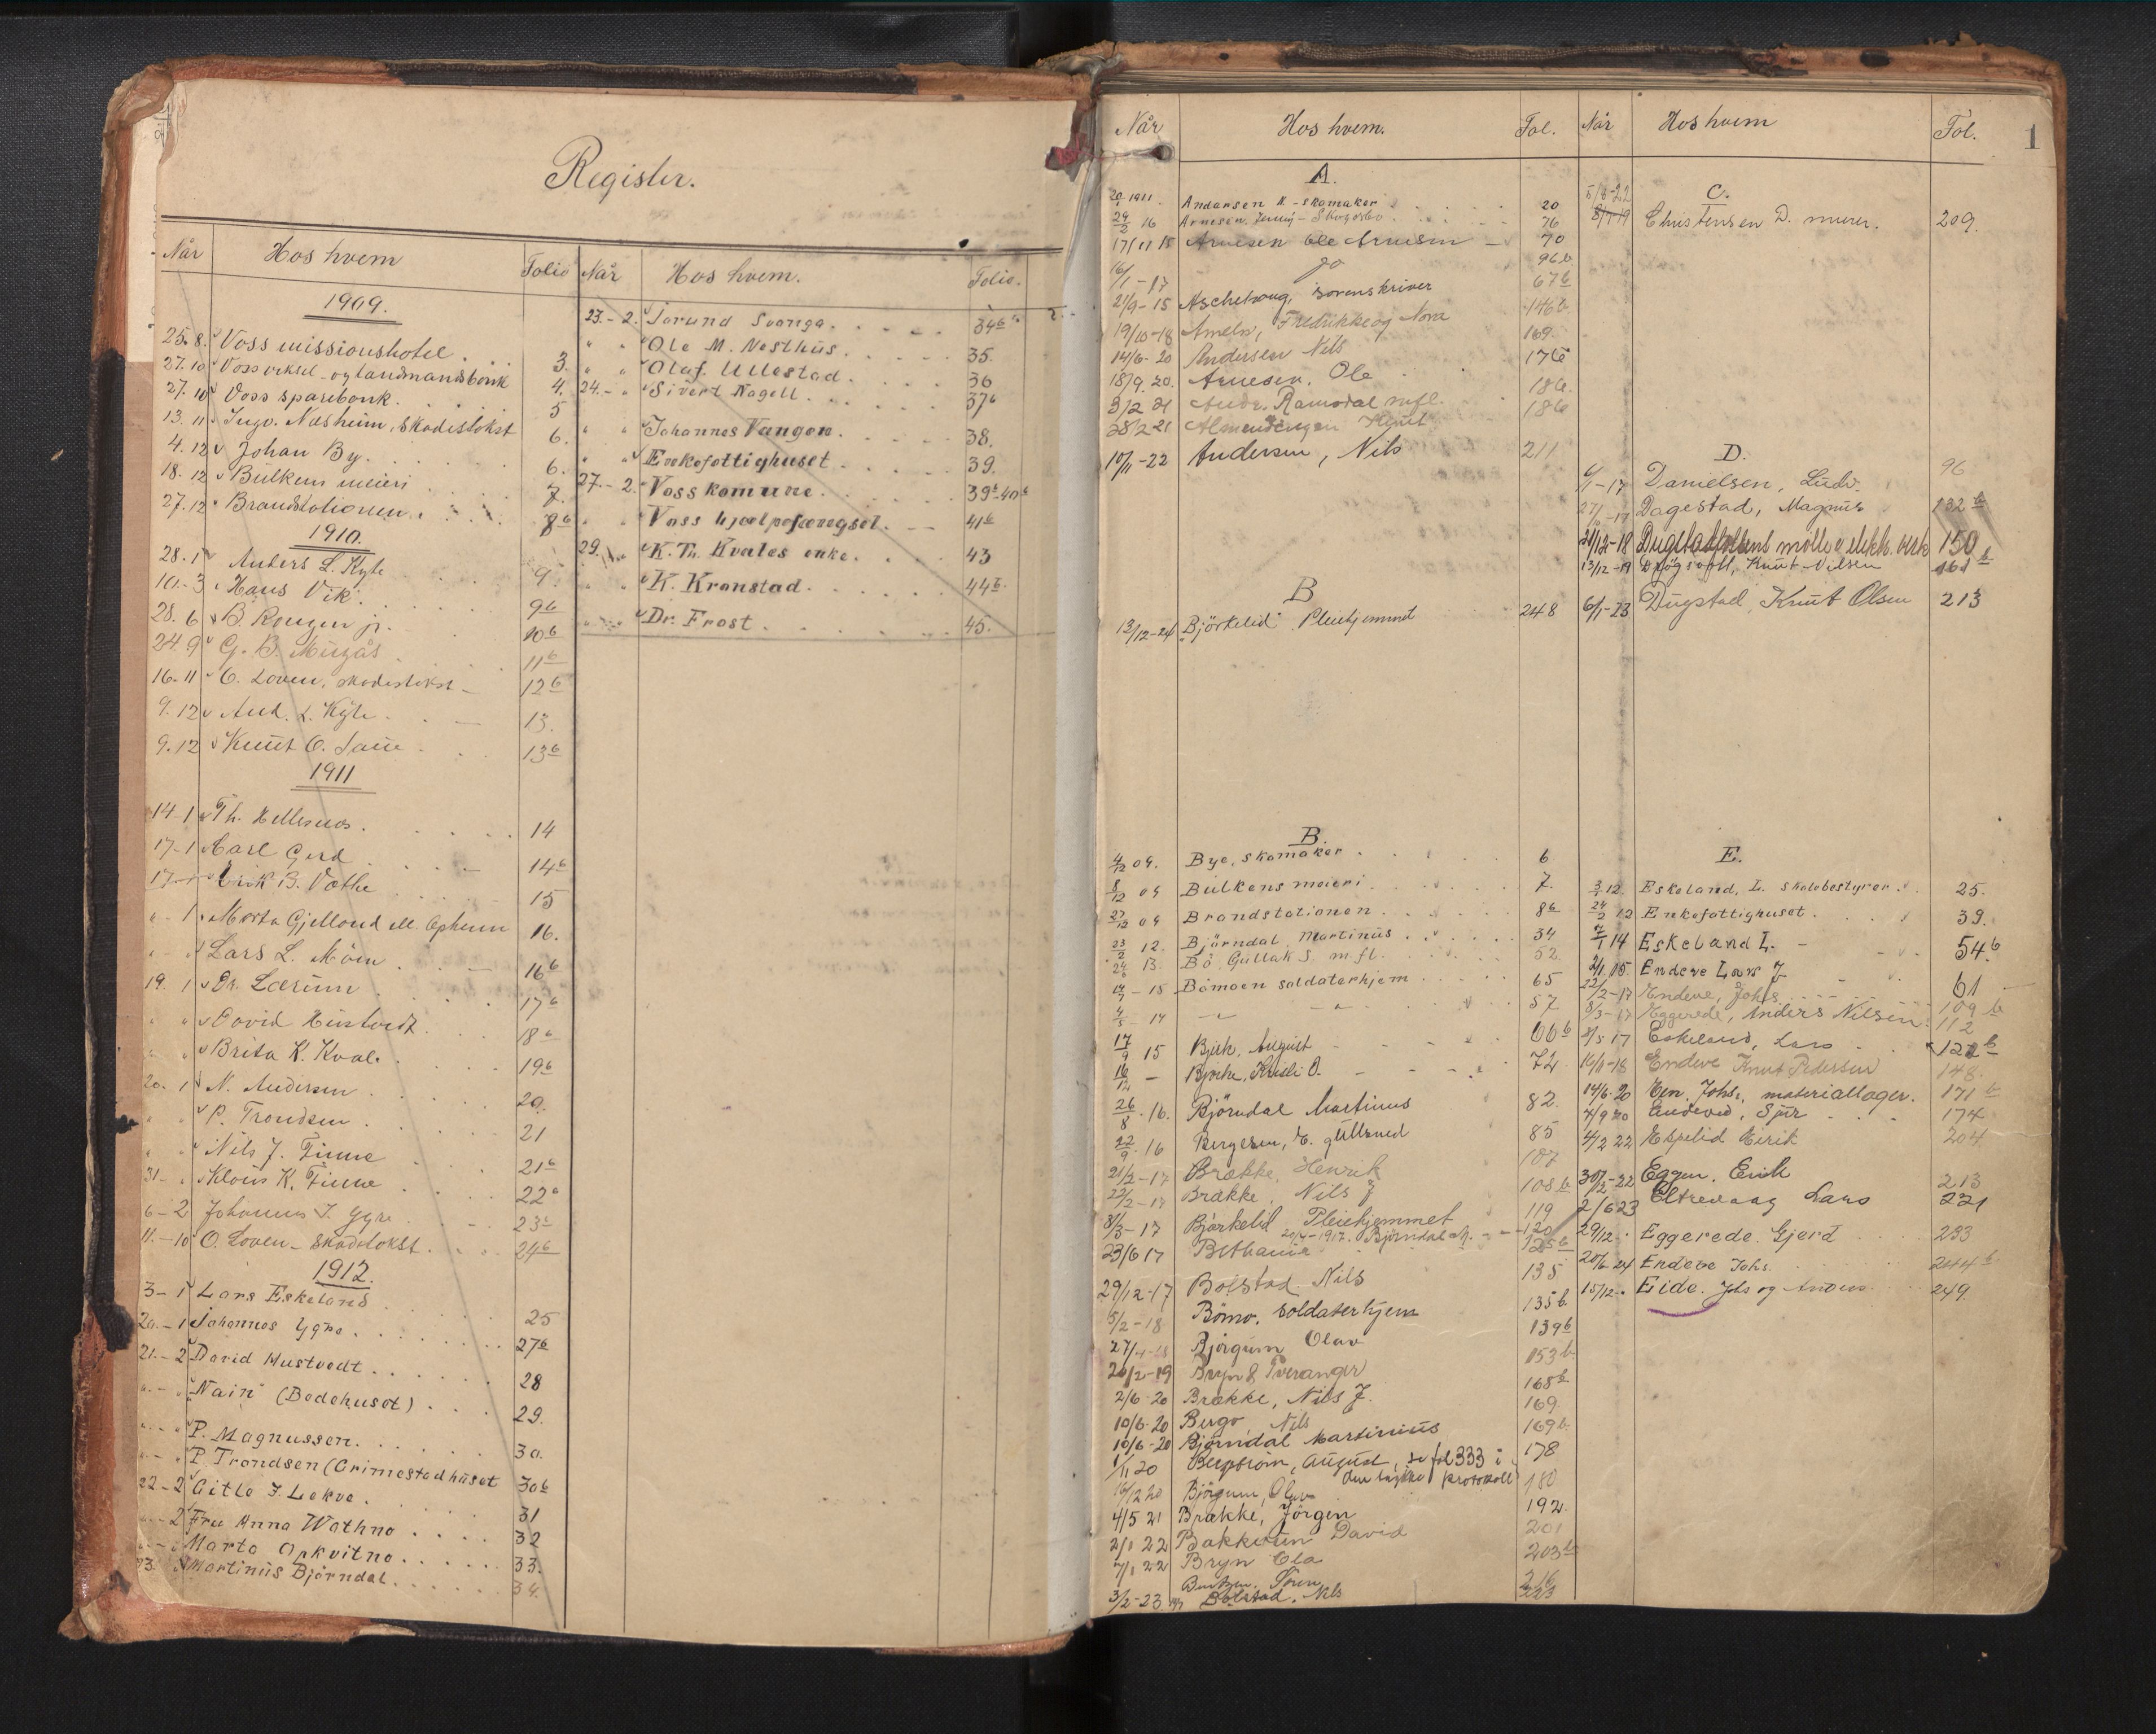 Register.
Når Hos hvem Folio
1909.
25.8. Voss missionshotel. 3.
27.10 Voss veksel- og landmandsbank 4.
27.10 Voss sparebank. 5
13.11. Ingv. Næsheim, skadestakst 6.
4.12 Johan By. 6.
18.12 Bulkens meieri 7.
27.12 Brandstationen. 8b
1910.
28.1 Anders L. Kyte 9.
10.-3 Hans Vik. 9b
28.6 B. Rongen jr. 10b
24.9 G. B. 11b
16.11 O. Loven, skadestakst 12b
9.12 And. L. Kyte. 13.
9.12 Knut O. Saue 13b
1911
14-1 Th. Hellesnes. 14
17-1 Carl Gerd 14b
17-1 Eirik B. Vethe 15
" - 1 Marta Gjelland ell. Opheim 16.
" - " Lars L. Møen 16b
19. 1 Dr. Lærum 17b
" " David Hustvedt. 18b
" " Brita K. Kvale. 19b
20. 1 N. Andersen 20.
" " P. Trondsen 21
" " Nils J. Finne 21b
31- " Klaus K. Finne 22b
6-2 Johannes J. Ygre 23b
11.-10 O. Loven - skadetakst. 24b
1912.
3-1 Lars Eskeland 25
20.-1 Johannes Ygre. 27b
21.-2 David Hustvedt. 28
" - " "Nain" (Bedehuset) 29.
" - " P. Magnussen. 30.
" - " P. Trondsen (Grimestadhuset 30b
22-2 Gitle J. Lekve. 31
" - 2 Fru Anna Wathne 32
" - " Marta Opkvitne 33.
23. " Martinus Bjørndal. 34.
Når Hos hvem. Folio.
23.-2. Torund Svanga. 34b
" " Ole M. Nesthus. 35.
" " Olaf Ullestad. 36
24.- " Sivert Nagell 37b
" " Johannes Vangen. 38.
" " Enkefattighuset. 39.
27.-2. Voss komune. 39b-40b
" " Voss hjælpefængsel. 41b
29. " K. Th. Kvales enke. 43
" " K. Kronstad. 44b
" " Dr. Frost. 45.
1
Når Hos hvem. Fol.
A.
20/1 1911 Andersen N - skomaker 20
24/2 16 Arnesen, Jenny - Skogasbo 76
17/11 15 Arnesen Ole Arnesen 70
16/1-17 do 96b
21/9-15 Aschehoug, sorenskriver 67b
19/10-18 Ameln, Fredrikke og Nora 146b
14/6-20 Andersen Nils 169.
18/9.20. Arnesen, Ole 176
3/2 21 Andr. Ramsdal mfl. 186.
28/2-21 Almendingen Knut 186
10/11-22 Andersen, Nils 211
B
13/12-24 Björkelid Pleiehjemmet 248
B.
4/12 09. Bye, skomaker 6
8/12 09 Bulkens meieri 7.
27/12 09 Brandstationen 8b
23/2 12. Bjørndal Martinus 34
24/6 13. Bø Gullak S. m. fl. 52.
14/7 - 15 Bømoen soldaterhjem 65
4/5 - 14 57
17/9 15 Bjerk, August 66b
16/12 - Bjørke, Knut O. 72
26/8.16. Björndal Martinus 82.
22/9.16 Bergesen, E. gullsmed 85
21/2-17 Brække, Henrik 107
22/2-17 Brække, Nils J 108b
8/3-17 Björkelid Pleiehjemmet 119
20/4-1917. Björndal M. 120
23/6 17 Bethania 125b
29/12-17 Bolstad Nils 135
5/2-18 Bömo, Soldaterhjem 135b.
27/4-18 Bjørgum Olav 139b
20/2-19 Bryn & Tveranger 153b.
2/6 20 Brække, Nils J. 168b
10/6-20 Bergo Nils 169
10/6-20 Björndal Martinius 169b.
1/11 20 Bergström, August, se fol 333 i 178
den tykke protokoll
16/12 20 Björgum, Olav 180
4/5 21 Brække, Jörgen 192.
2/1 22 Bakketun David 201
7/1 22 Bryn Ola 203b
Berntzen. Sørn 216
3/2-23 Bolstad. Nils 223
Når Hos hvem Fol.
C.
5/8-22
8/1-19 Christensen D. murer. 209.
D.
4/1-17 Danielsen, Ludv. 96
27/10-17 Dagestad, Magnus 132b
21/12-18 Dugstadfossens mölle & elekt. verk 150b
13/12-19 Drøgsvoll, Knut Nilsen 161b
6/1-23 Dugstad, Knut Olsen 213
E.
3/1 12. Eskeland, L. skolebestyrer. 25.
24/2 12 Enkefattighuset. 39.
7/1 14 Eskeland L. 54b
2/1 15. Endeve Lars J 61
22/2-17 Endeve, Johs. 109b
8/3-17 Eggerede, Anders Nilsen. 112
2/5 17 Eskeland, Lars 122b
16/11-18 Endeve Knut Pedersen 148.
14/6-20 Een, Johs, materiallager. 171b
4/9 20 Endeve, Sjur 174
4/2 22 Espelid Eirik 204
30/12-22 Eggen. Eirik 213
2/6 23 Eltrevaag Lars 221
29/12 Eggerede. Gjerd 233
20/6-24 Endeve Johs. 244b
15/12. Eide. Johs og Anders 249.